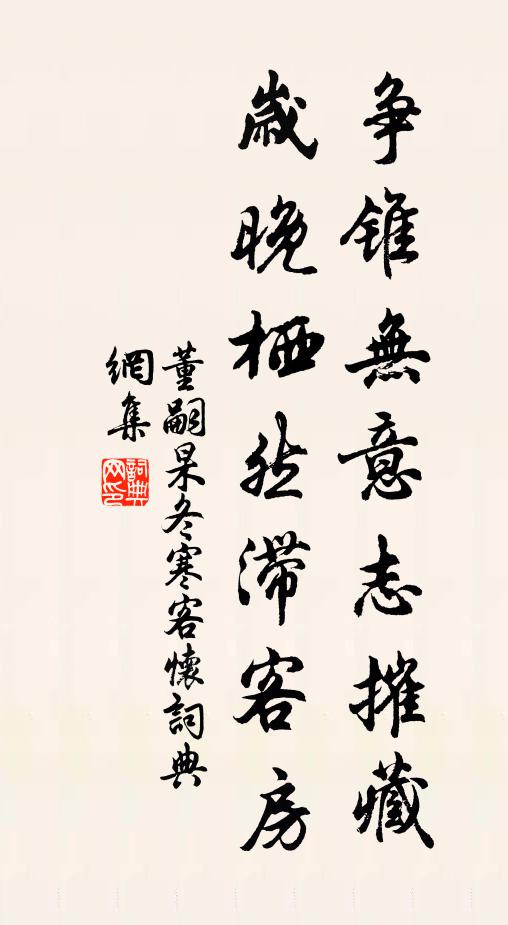 争錐無意志摧藏
歲晚栖然滯客房
董嗣杲冬寒客懷詞典
網集
詞典網印